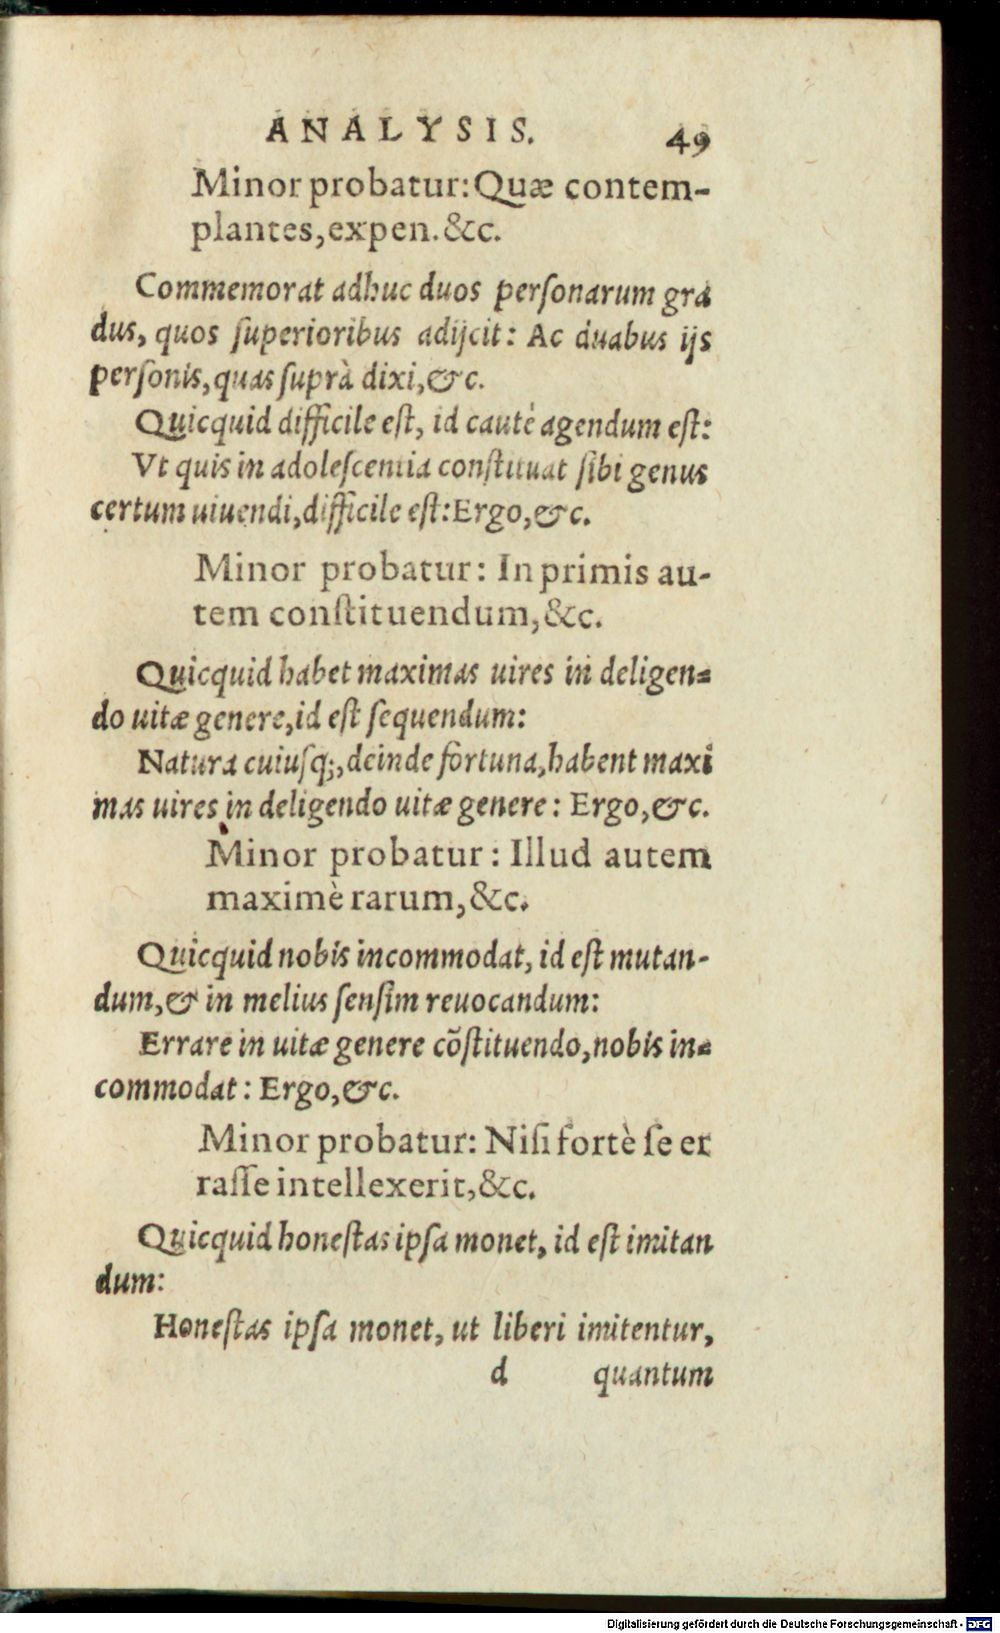 ANALYSIS. 49
Minor probatur: Quæ contem-
plantes, expen. &c.
Commemorat adhuc duos perſonarum gra
dus, quos ſuperioribus adijcit: Ac duabus ijs
perſonis, quas ſuprà dixi, &c.
Quicquid difficile eſt, id cautè agendum eſt:
Vt quis in adoleſcentia conſtituat ſibi genus
certum uiuendi, difficile eſt: Ergo, &c.
Minor probatur: In primis au-
tem conſtituendum, &c.
Quicquid habet maximas uires in deligen-
do uitæ genere, id eſt ſequendum:
Natura cuiuſq;, deinde fortuna, habent maxi
mas uires in deligendo uitæ genere: Ergo, &c.
Minor probatur: Illud autem
maximè rarum, &c.
Quicquid nobis incommodat, id eſt mutan-
dum, & in melius ſenſim reuocandum:
Errare in uitæ genere cõſtituendo, nobis in-
commodat: Ergo, &c.
Minor probatur: Niſi fortè ſe er
raſſe intellexerit, &c.
Quicquid honeſtas ipſa monet, id eſt imitan
dum:
Honeſtas ipſa monet, ut liberi imitentur,
d quantum
Digitalisierung gefördert durch die Deutsche Forschungsgemeinschaft - DFG